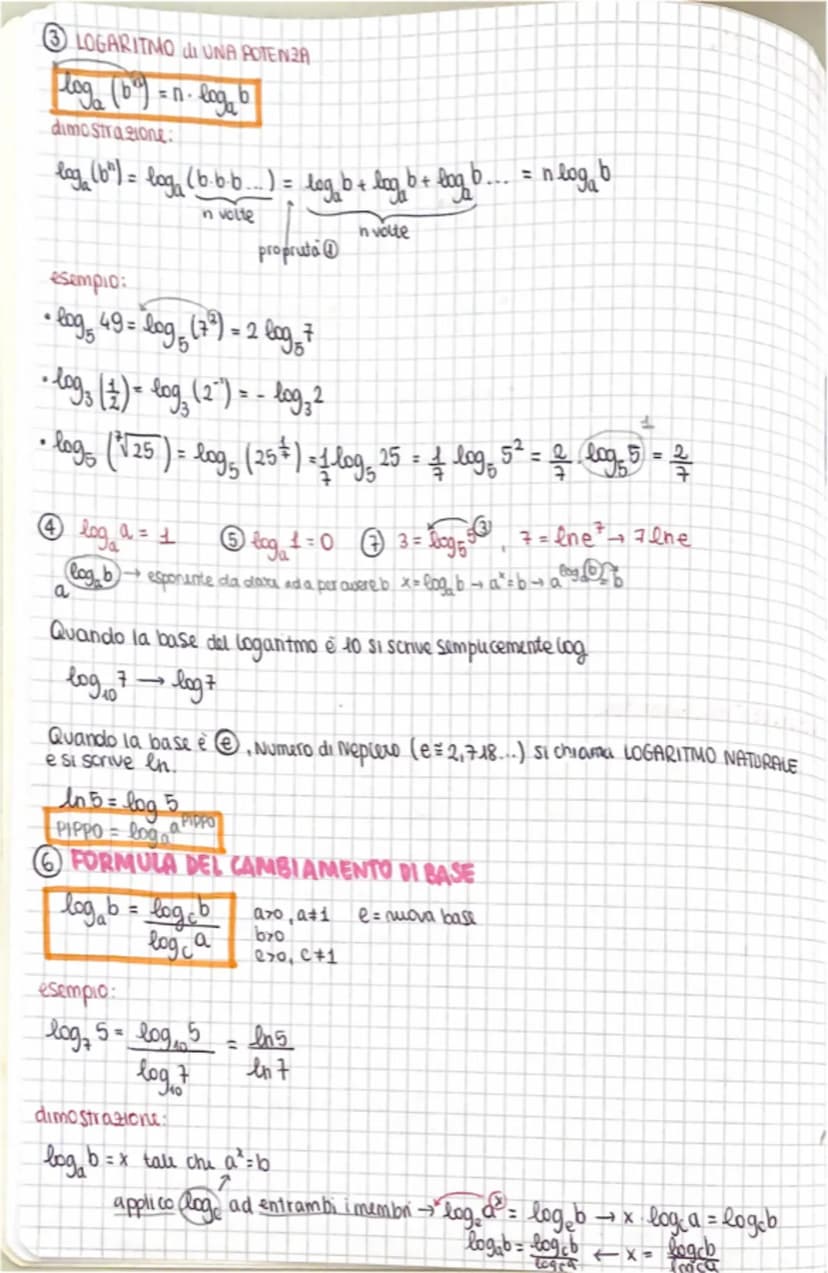 ③ LOGARITMO di UNA POTENZA
logₐ(bⁿ) = n · logₐb
dimostrazione:
logₐ(bⁿ) = logₐ(b·b·b...) = logₐb + logₐb + logₐb... = n logₐb
n volte
n volte
proprietà ①
esempio:
• log₅ 49 = log₅(7²) = 2 log₅7
• log₃(1/2) = log₃(2⁻¹) = - log₃2
• log₅(⁷√25) = log₅(25^(1/7)) = 1/7 log₅ 25 = 1/7 log₅ 5² = 2/7 · log₅5 = 2/7
1
④ logₐa = 1 ⑤ logₐ1 = 0 ⑦ 3 = log₅5³, 7 = lne⁷ → 7lne
a^(logₐb) → esponente da dare ad a per avere b x = logₐb → aˣ = b → a^(logₐb) = b
Quando la base del logaritmo è 10 si scrive semplicemente log
log₁₀7 → log7
Quando la base è e, Numero di Nepiero (e ≅ 2,718...) si chiama LOGARITMO NATURALE
e si scrive ln.
ln5 = log 5
PIPPO = logₐa^PIPPO
⑥ FORMULA DEL CAMBIAMENTO DI BASE
logₐb = log_c b / log_c a a>0, a≠1 c = nuova base
b>0
c>0, c≠1
esempio:
log₇5 = log₁₀5 / log₁₀7 = ln5 / ln7
dimostrazione:
logₐb = x tale che aˣ = b
applico log_c ad entrambi i membri → log_c aˣ = log_c b → x · log_c a = log_c b
logₐb = log_c b / log_c a ← x = log_c b / log_c a